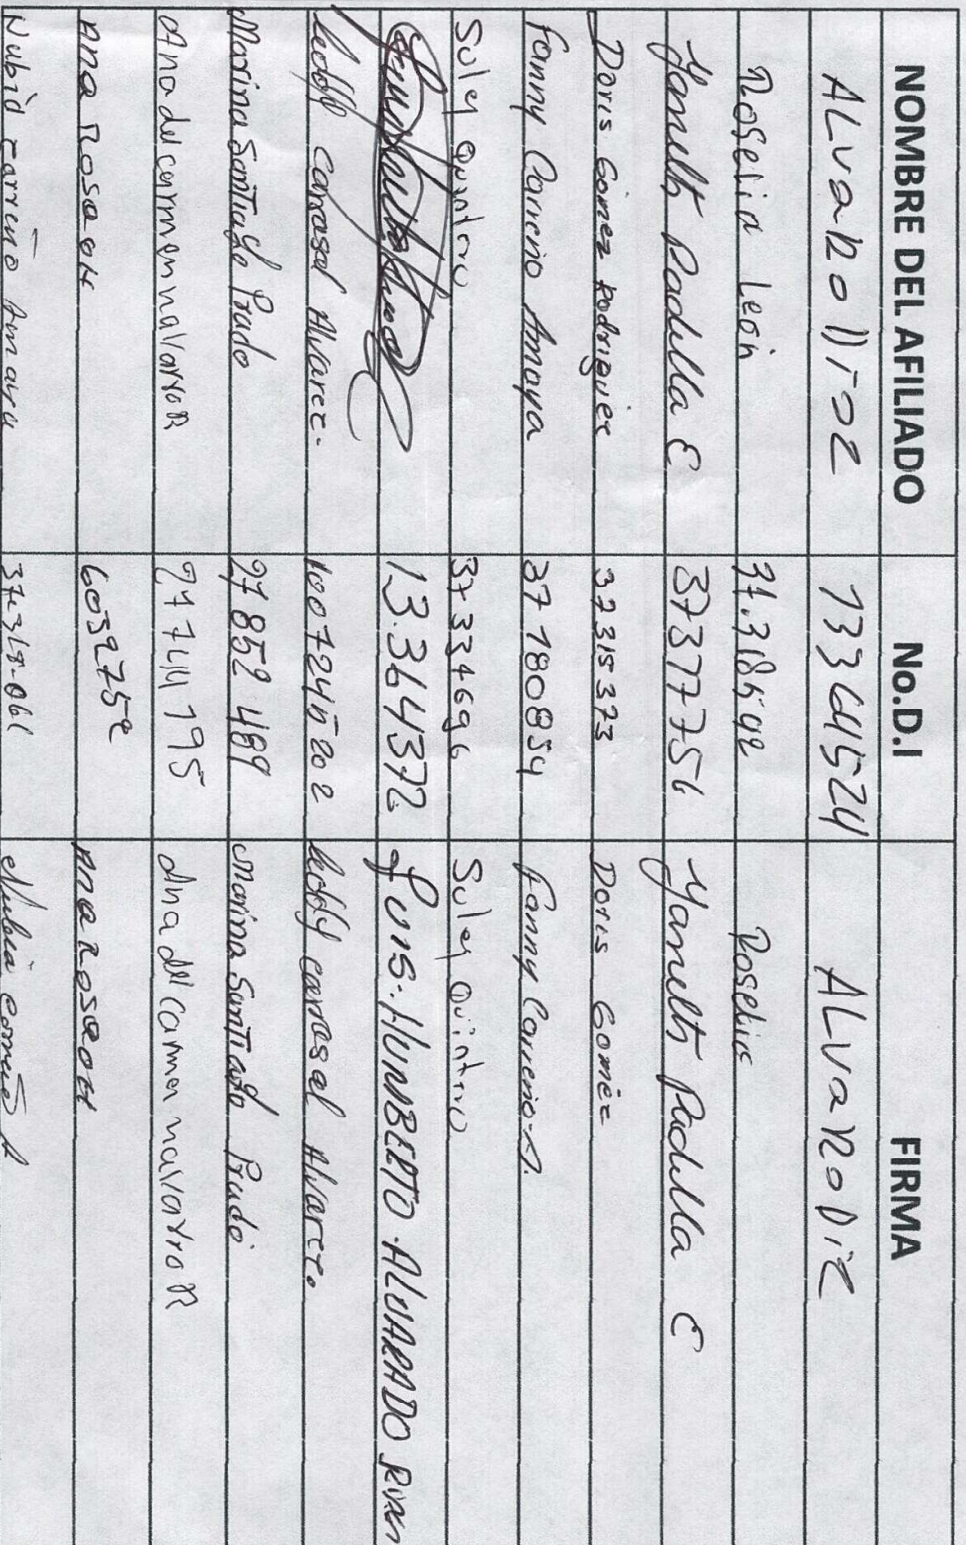 NOMBRE DEL AFILIADO No.D.I FIRMA
ALvaRo Diaz 13364524 ALvaRo Diz
Roselia Leon 37.318542 Roselia
Yaneth Padilla E 37377756 Yaneth Padilla E
Doris Gómez Rodriguez 37315373 Doris Goméz
Fanny Carreño Amaya 37180854 Fanny Carreño A.
Suley Quintero 37334696 Suley Quintero
13.364372 Luis. HUMBERTO ALVARADO
carrascal Alvarez. 1007245202 carrascal Alvarez.
Marina Santiago Prado 27852489 Marina Santiago Prado
Ana del carmen navarro R 27744195 Ana del Carmen navarro R
Ana Rosa Ana Rosa
Nubia carreño Amaya 37-318-061 Nubia carreño A